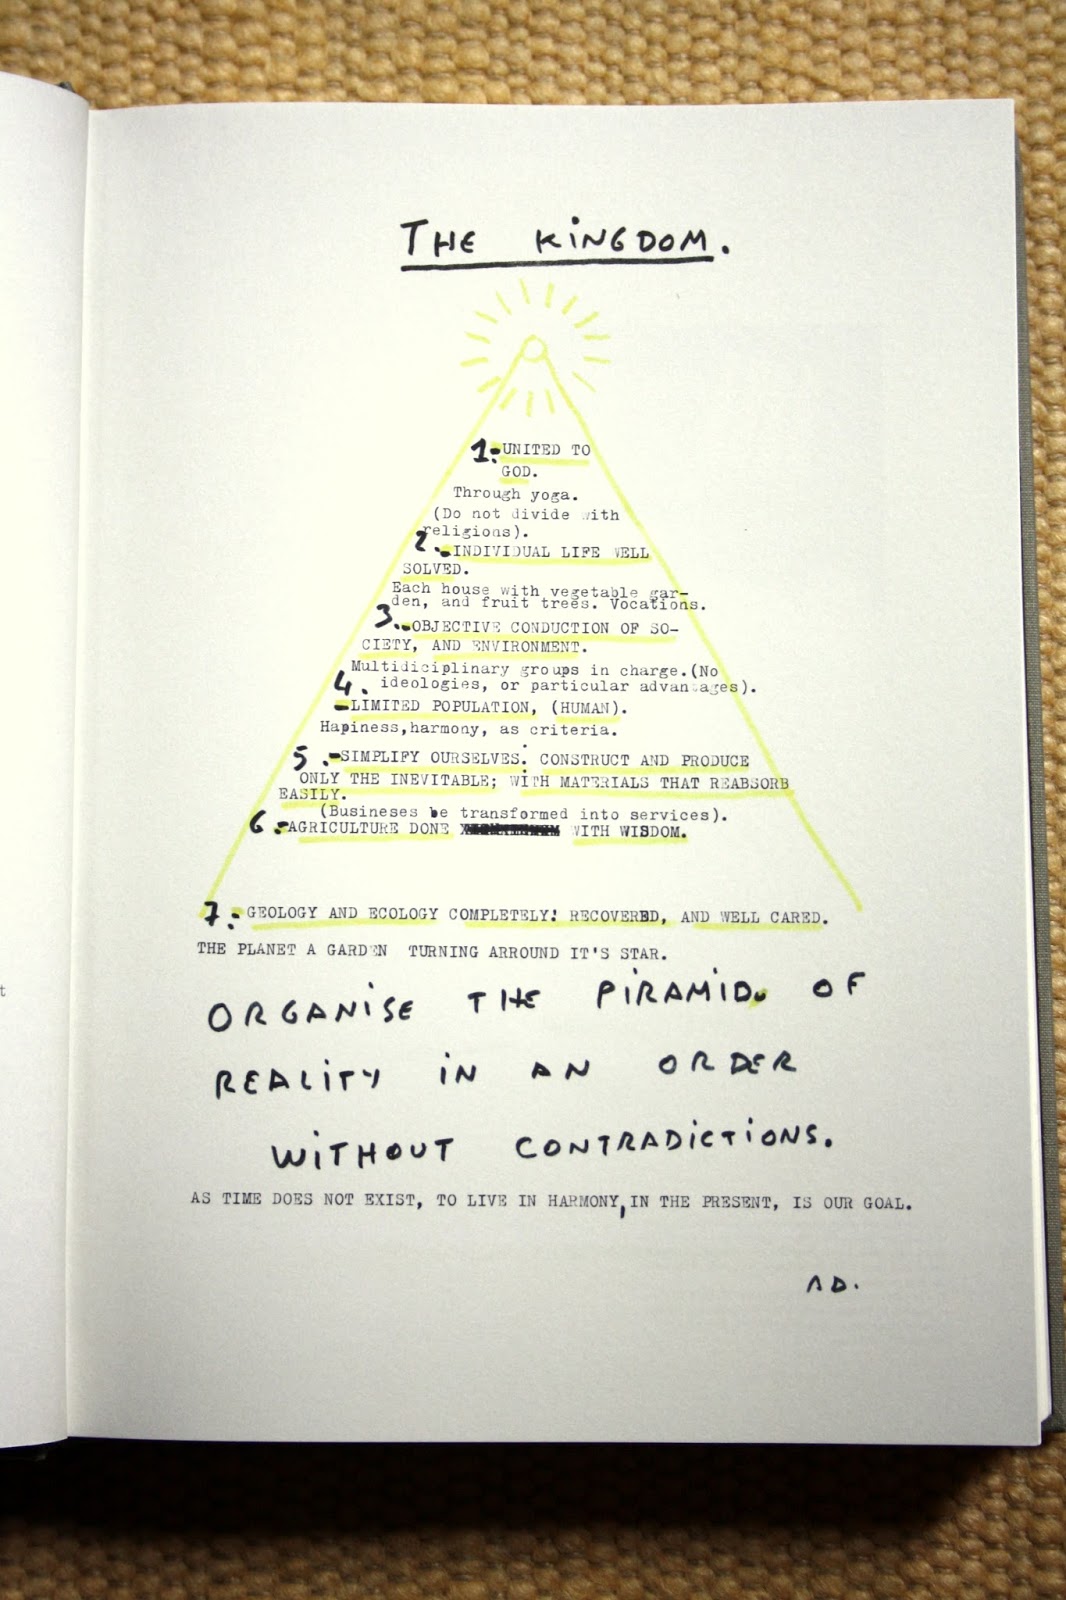 THE KiNGDOM.
1.-UNITED TO
GOD.
Through yoga.
(Do not divide with
religions).
2.-INDIVIDUAL LIFE WELL
SOLVED.
Each house with vegetable gar-
den, and fruit trees. Vocations.
3.-OBJECTIVE CONDUCTION OF SO-
CIETY, AND ENVIRONMENT.
Multidiciplinary groups in charge.(No
ideologies, or particular advantages).
4.
-LIMITED POPULATION, (HUMAN).
Hapiness,harmony, as criteria.
5.-SIMPLIFY OURSELVES. CONSTRUCT AND PRODUCE
ONLY THE INEVITABLE; WITH MATERIALS THAT REABSORB
EASILY.
(Busineses be transformed into services).
6.-AGRICULTURE DONE WITH WISDOM.
7.-GEOLOGY AND ECOLOGY COMPLETELY! RECOVERED, AND WELL CARED.
THE PLANET A GARDEN TURNING ARROUND IT'S STAR.
ORGANiSE THE PiRAMiD. OF
REALiTY iN AN ORDER
WiTHOUT CONTRADiCTiONS.
AS TIME DOES NOT EXIST, TO LIVE IN HARMONY,IN THE PRESENT, IS OUR GOAL.
AD.
t